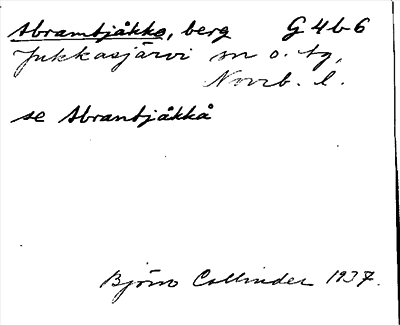 Abramtjåkko, berg G 4b-6
Jukkasjärvi sn o. tg,
Norrb. l.
se Abrantjåkkå
Björn Collinder 1937.